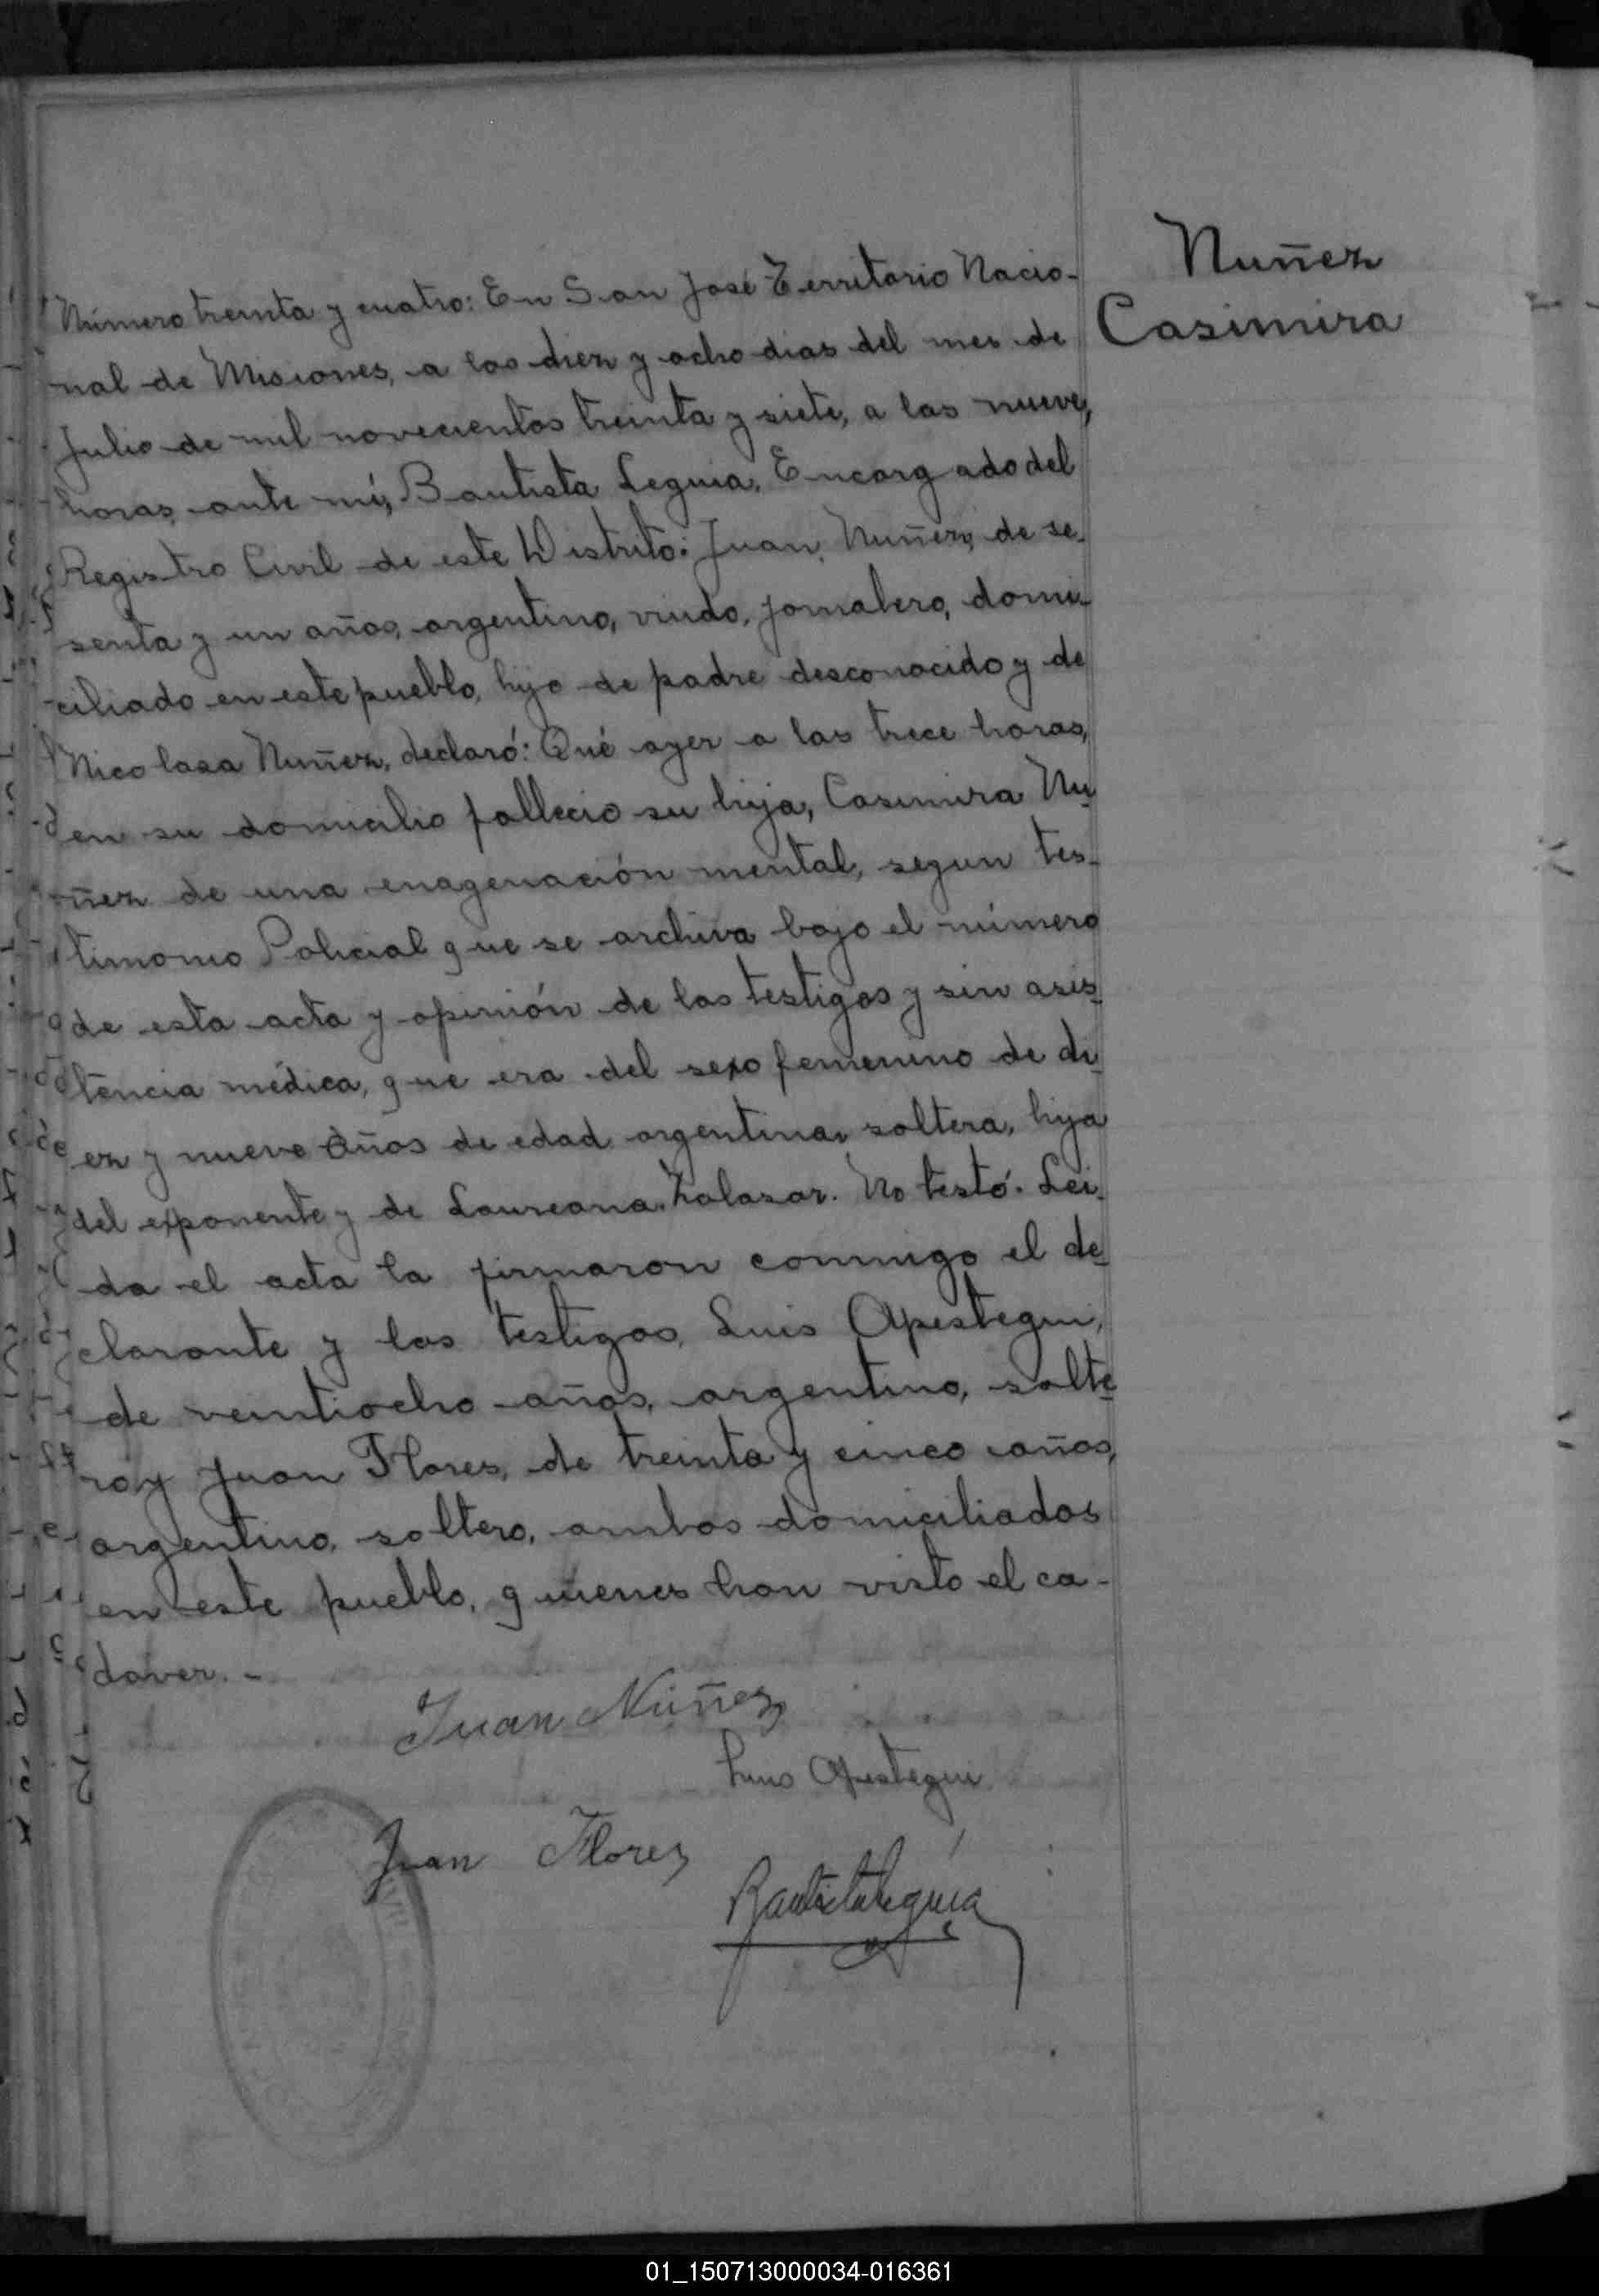 Nuñez
Casimira
Número treinta y cuatro: En San José Territorio Nacio-
nal de Misiones, a los diez y ocho dias del mes de
Julio de mil novecientos treinta y siete, a las nueve,
horas, ante mí, Bautista Leguia, Encargado del
Registro Civil de este Distrito: Juan, Nuñez, de se-
senta y un años, argentino, viudo, jornalero, domi-
ciliado en este pueblo, hijo de padre desconocido y de
Nicolasa Nuñez, declaró: Qué ayer a las trece horas,
en su domicilio fallecio su hija, Casimira Nu-
ñez de una enagenación mental, segun tes-
timonio Policial que se archiva bajo el número
de esta acta y opinión de los testigos y sin asis-
tencia médica, que era del sexo femenino de di-
ez y nueve años de edad argentina, soltera, hija
del exponente y de Laureana Zalasar. No testó. Lei-
da el acta la firmaron conmigo el de-
clarante y los testigos, Luis Apestegui,
de veintiocho años, argentino, solte-
ro, y Juan Flores, de treinta y cinco años,
argentino, soltero, ambos domiciliados
en este pueblo, quienes han visto el ca-
daver. -
Juan Núñez
Luis Apestegui
Juan Flores
Bautista Leguía
01_150713000034-016361